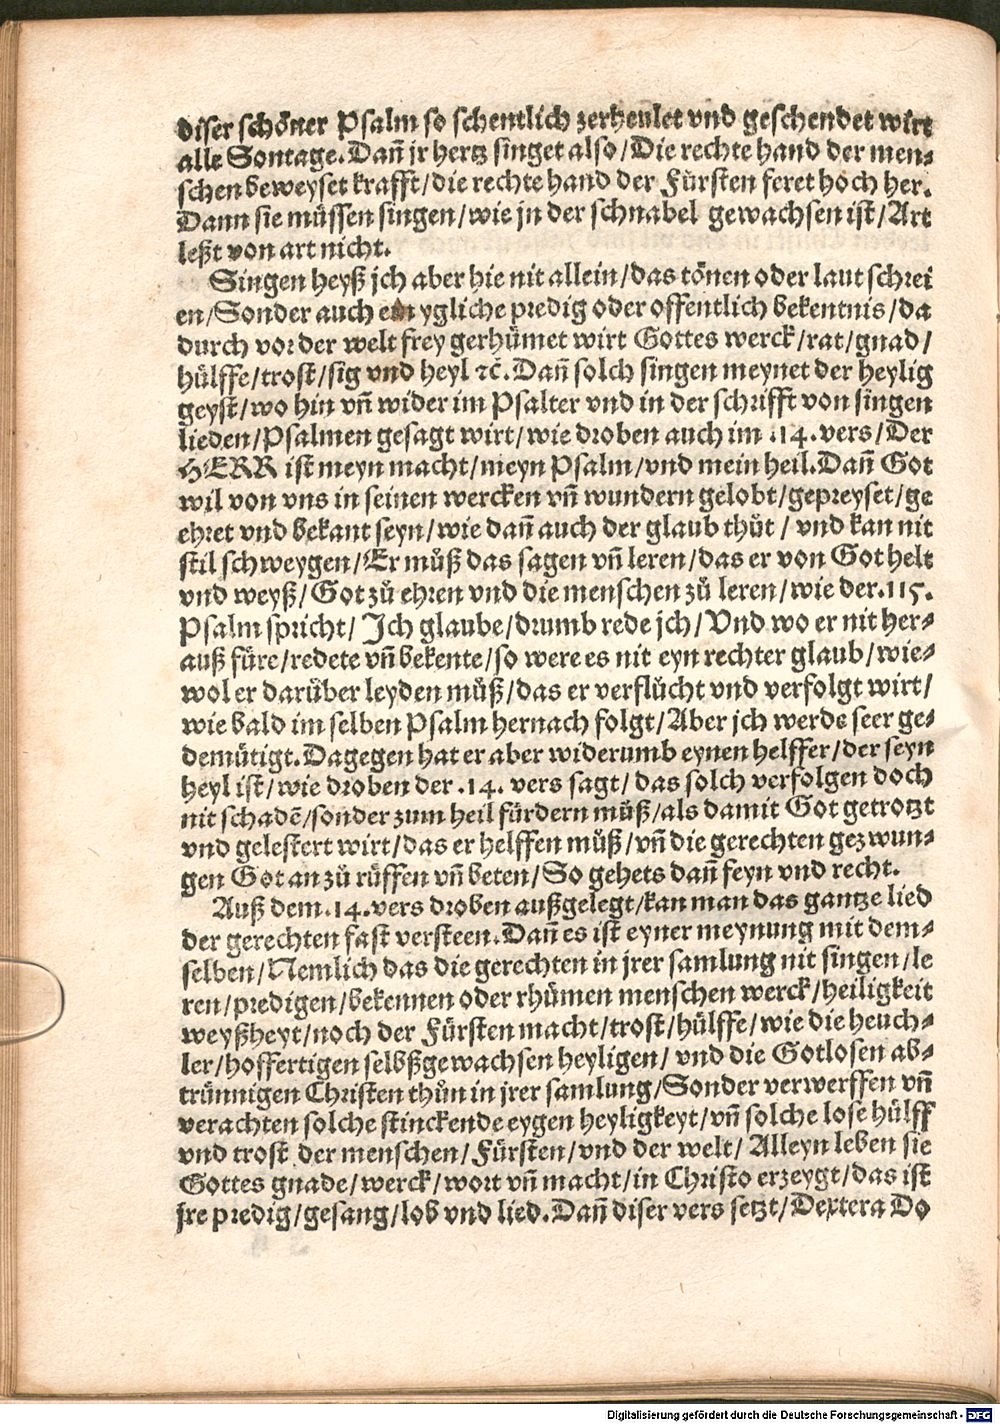 diser schöner Psalm so schentlich zerheulet vnd geschendet wirt
alle Sontage. Dañ jr hertz singet also/ Die rechte hand der men⸗
schen beweyset krafft/ die rechte hand der Fürsten feret hoch her.
Dann sie müssen singen/ wie jn der schnabel gewachsen ist/ Art
leßt von art nicht.
Singen heyß jch aber hie nit allein/ das tönen oder laut schrei
en/ Sonder auch ein ygliche predig oder offentlich bekentnis/ da
durch vor der welt frey gerhümet wirt Gottes werck/ rat/ gnad/
hülffe/ trost/ sig vnd heyl ⁊c̃. Dañ solch singen meynet der heylig
geyst/ wo hin vñ wider im Psalter vnd in der schrifft von singen
lieden/ Psalmen gesagt wirt/ wie droben auch im .14. vers/ Der
HERR ist meyn macht/ meyn Psalm/ vnd mein heil. Dañ Got
wil von vns in seinen wercken vñ wundern gelobt/ gepreyset/ ge
ehret vnd bekant seyn/ wie dañ auch der glaub thůt / vnd kan nit
stil schweygen/ Er můß das sagen vñ leren/ das er von Got helt
vnd weyß/ Got zů ehren vnd die menschen zů leren/ wie der .115.
Psalm spricht/ Ich glaube/ drumb rede jch/ Vnd wo er nit her⸗
auß füre/ redete vñ bekente/ so were es nit eyn rechter glaub/ wie⸗
wol er darüber leyden můß/ das er verflůcht vnd verfolgt wirt/
wie bald im selben Psalm hernach folgt/ Aber jch werde seer ge⸗
demütigt. Dagegen hat er aber widerumb eynen helffer/ der seyn
heyl ist/ wie droben der .14. vers sagt/ das solch verfolgen doch
nit schadẽ/ sonder zum heil fürdern můß/ als damit Got getrotzt
vnd gelestert wirt/ das er helffen můß/ vñ die gerechten gezwun⸗
gen Got an zů rüffen vñ beten/ So gehets dañ feyn vnd recht.
Auß dem .14. vers droben außgelegt/ kan man das gantze lied
der gerechten fast versteen. Dañ es ist eyner meynung mit dem⸗
selben/ Nemlich das die gerechten in jrer samlung nit singen/ le
ren/ predigen/ bekennen oder rhümen menschen werck/ heiligkeit
weyßheyt/ noch der Fürsten macht/ trost/ hülffe/ wie die heuch⸗
ler/ hoffertigen selbßgewachsen heyligen/ vnd die Gotlosen ab⸗
trünnigen Christen thůn in jrer samlung/ Sonder verwerffen vñ
verachten solche stinckende eygen heyligkeyt/ vñ solche lose hülff
vnd trost der menschen/ Fürsten/ vnd der welt/ Alleyn leben sie
Gottes gnade/ werck/ wort vñ macht/ in Christo erzeygt/ das ist
jre predig/ gesang/ lob vnd lied. Dañ diser vers setzt/ Dextera Do
Digitalisierung gefördert durch die Deutsche Forschungsgemeinschaft - DFG